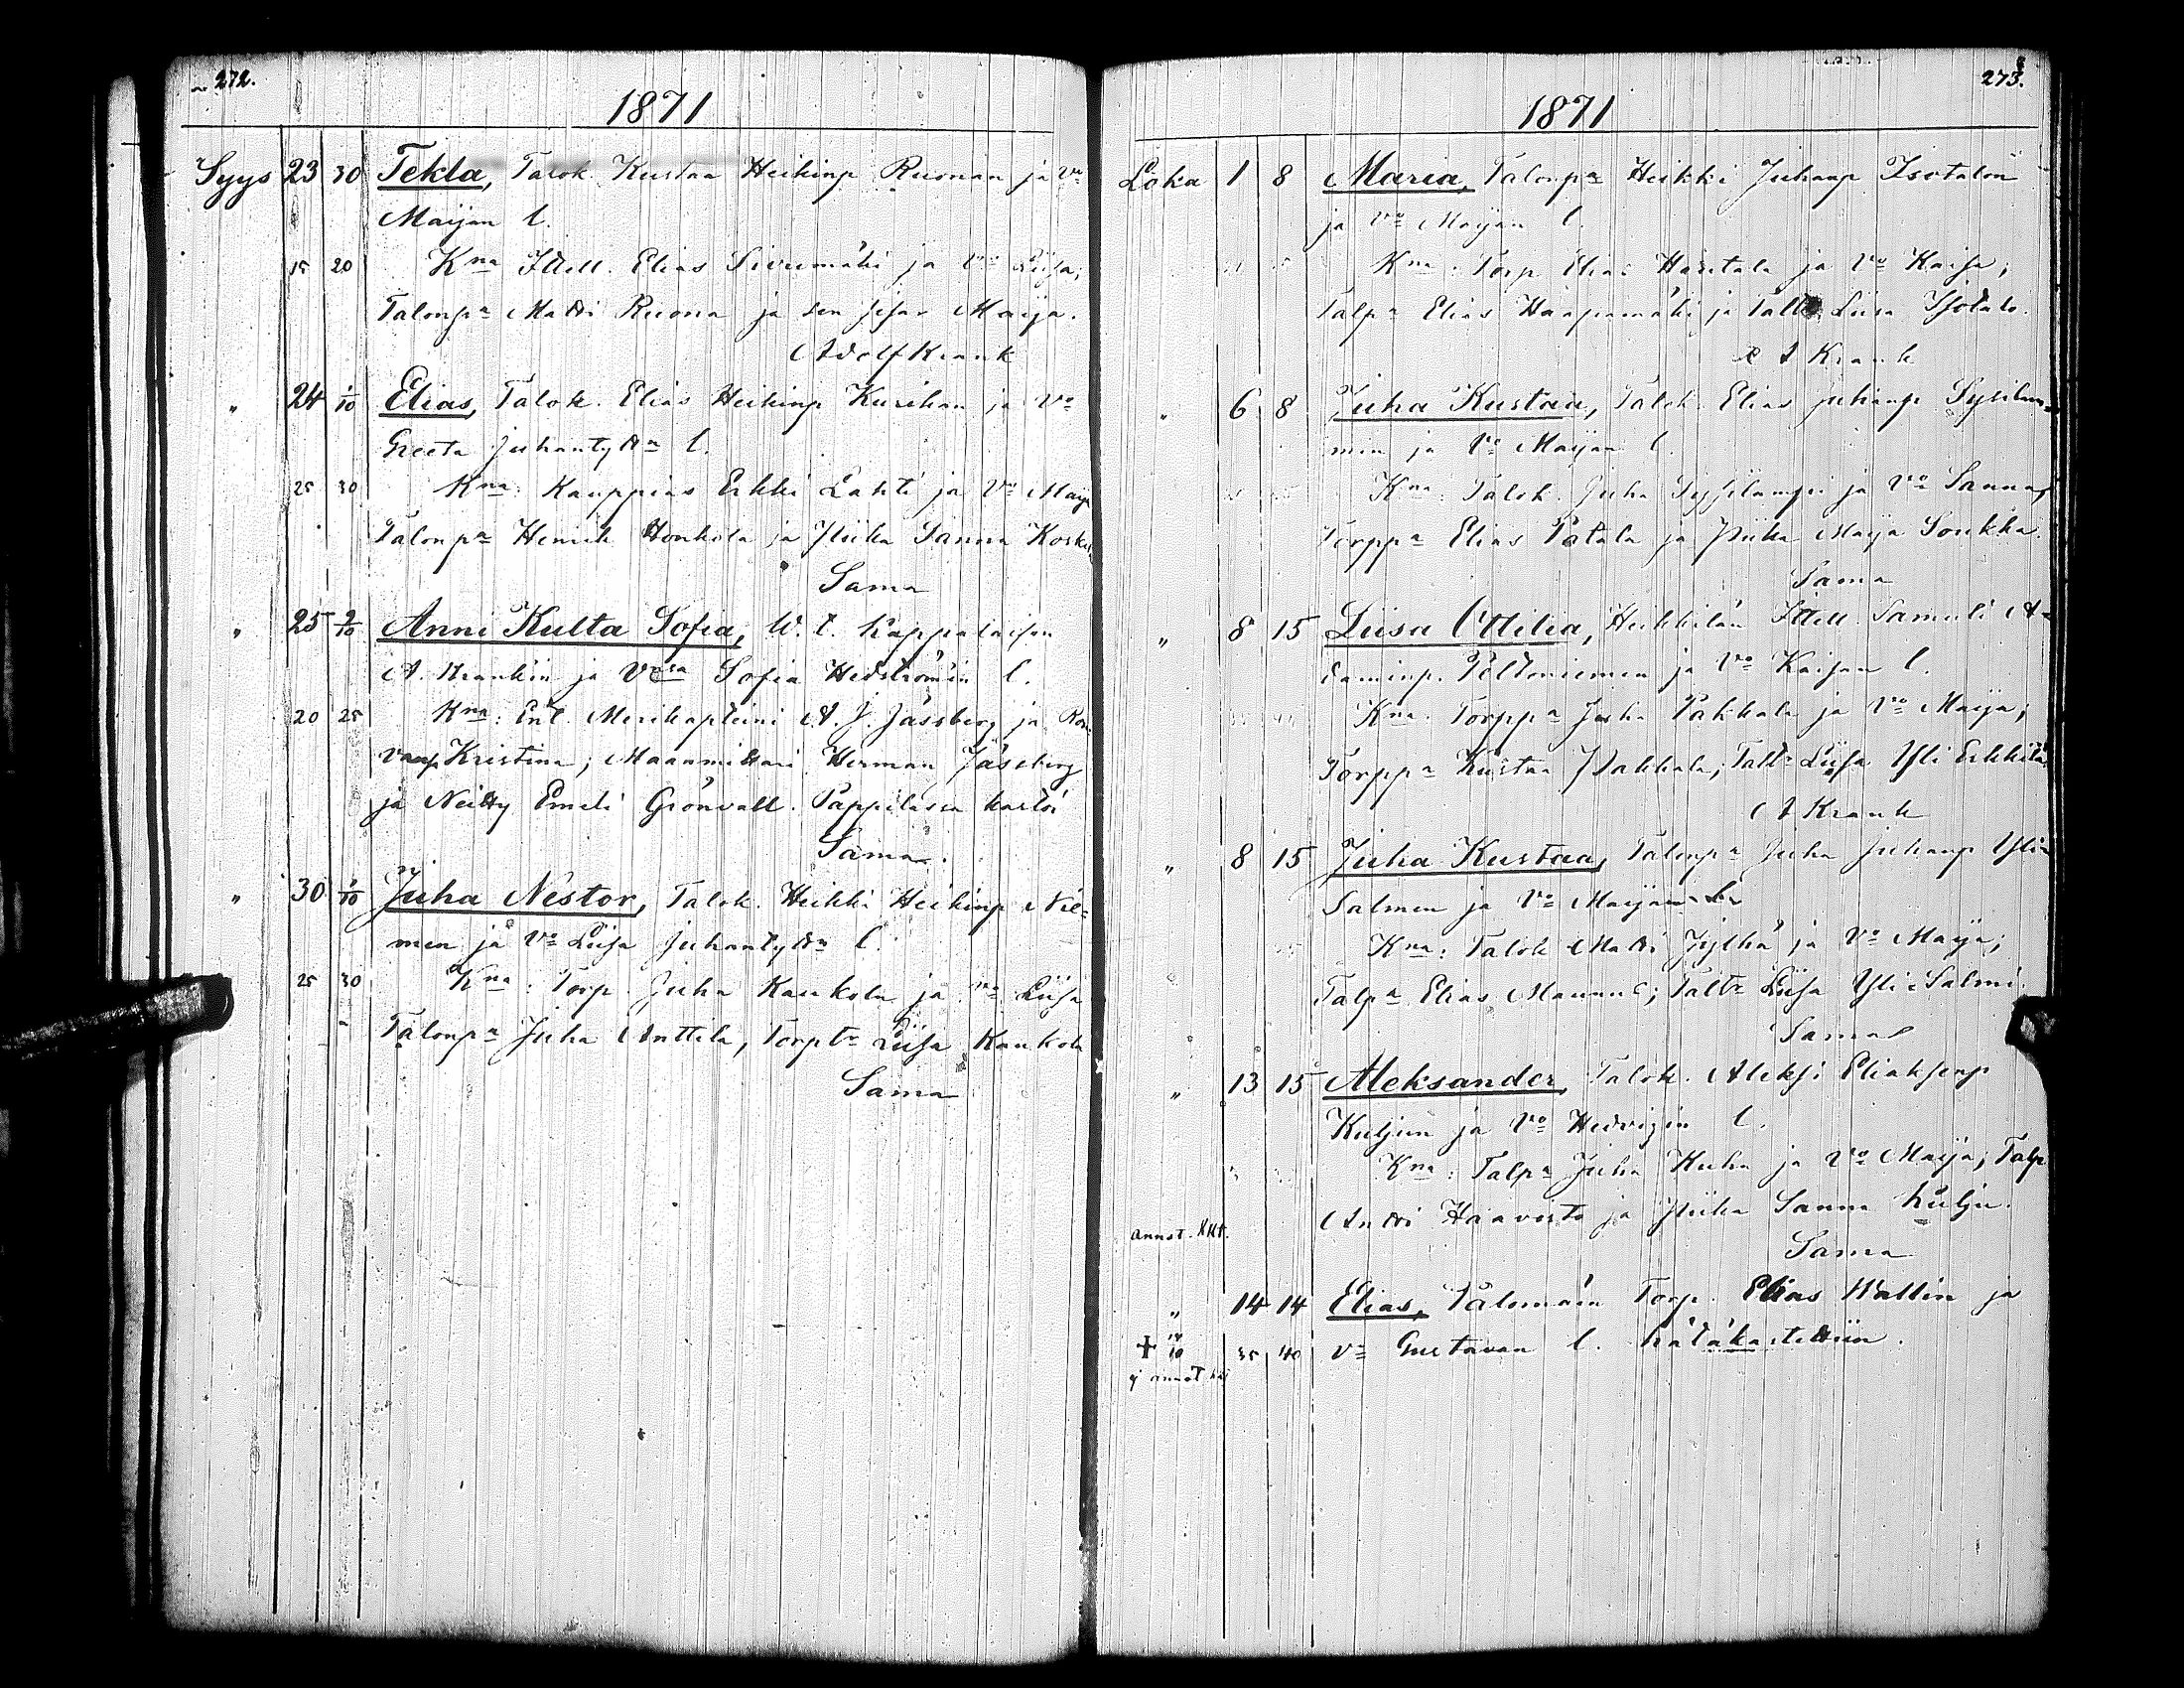 272.
1871
Syys 23 30 Tekla, Talok. Kustaa Heikinp Ruonan ja Vo
Maijan l.
15 20 Kna Itell. Elias Sivumäki ja Vo Liisa;
Talonpa Matti Ruona ja sen sisar Maija.
Adolf Krank
" 24 1/10 Elias, Talok. Elias Heikinp Kurikan ja Vo
Greeta Juhantyttn l.
25 30 Kna: Kauppias Erkki Lahti ja Vo Maija
Talonpa Henrik Honkola ja Piika Sanna Koski
Sama
" 25 2/10 Anni Kulta Sofia, W. t. Kappalaisen
A. Krankin ja Vosa Sofia Hedströmin l.
20 25 Kna: Ent. Merikapteini A. J. Jässberg ja Rou-
vansa Kristina; Maanmittari Herman Jässberg
ja Neitsy Emeli Grönvall. Pappilassa kastoi
Sama.
" 30 1/10 Juha Nestor, Talok. Heikki Heikinp Nie-
men ja Vo Liisa Juhantyttn l.
25 30 Kna: Torp. Juha Kaukola ja Vo Liisa
Talonpa Juha Anttila, Torptr Liisa Kaukola
Sama
273.
1871
Loka 1 8 Maria, Talonpa Heikki Juhanp Isotalon
ja Vo Maijan l.
Kna: Torp Elias Haritala ja Vo Kaisa;
Talpa Elias Haapamäki ja Taltr Liisa Isotalo.
A Krank
" 6 8 Juha Kustaa, Talok. Elias Juhanp Sysilam-
min ja Vo Maijan l.
Kna: Talok. Juha Syssilampi ja Vo Sanna,
Torppa Elias Patala ja Piika Maija Soukka.
Sama
" 8 15 Liisa Ottilia, Heikkilän Itell. Samuli A-
daminp. Peltoniemen ja Vo Kaisan l.
Kna: Torppa Juha Pakkala ja Vo Maija;
Torppa Kustaa Pakkala; Taltr Liisa Yli Erkkilä.
A Krank
" 8 15 Juha Kustaa, Talonpa Juha Juhanp Yli-
Salmen ja Vo Maijan l.
Kna: Talok Matti Jylhä ja Vo Maija;
Talpa Elias Mannu; Taltr Liisa Yli Salmi.
Sama
" 13 15 Aleksander, Talok. Aleksi Eliaksenp
Kuljun ja Vo Hedvigin l.
Kna: Talpa Juha Kuha ja Vo Maija; Talp
Antti Haavisto ja Piika Sanna Kulju.
annot.
Sama
" 14 14 Elias, Palomäen Torp. Elias Wallin ja
+ 14/10 35 40 Vo Gustavan l. hätäkastettiin.
ej annot